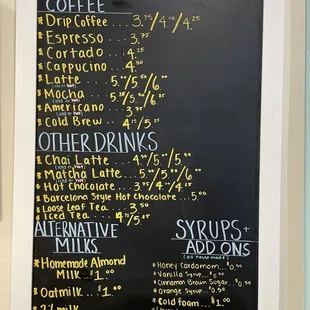 COFFEE
* Drip Coffee... 3.75/4.00/4.25
* Espresso... 3.75
* Cortado... 4.25
* Cappucino... 4.50
* Latte...
(iced or hot)
* Mocha...
(iced or hot)
* Americano... 3.75
(iced or hot)
* Cold Brew...
OTHER DRINKS
* Chai Latte...
(iced or hot)
* Matcha Latte...
(iced or hot)
* Hot Chocolate...
* Barcelona Style Hot Chocolate... 5.00
* Loose Leaf Tea... 3.50
* Iced Tea... 4.75/5.25
ALTERNATIVE
MILKS
* Homemade Almond
Milk...$1.00
* Oatmilk...$1.00
SYRUPS +
ADD ONS
(all house made)
* Honey Cardamom...$0.50
* Vanilla Syrup...$0.50
* Cinnamon Brown Sugar...$0.50
* Orange Syrup...$0.50
* Cold foam...$1.00